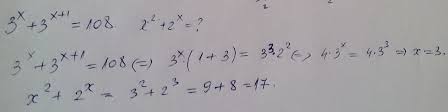 3^x + 3^{x+1} = 108.   x² + 2^x = ?
3^x + 3^{x+1} = 108 (=) 3^x · (1 + 3) = 3³·2² (=) 4·3^x = 4·3³ ⇒ x = 3.
x² + 2^x = 3² + 2³ = 9 + 8 = 17.